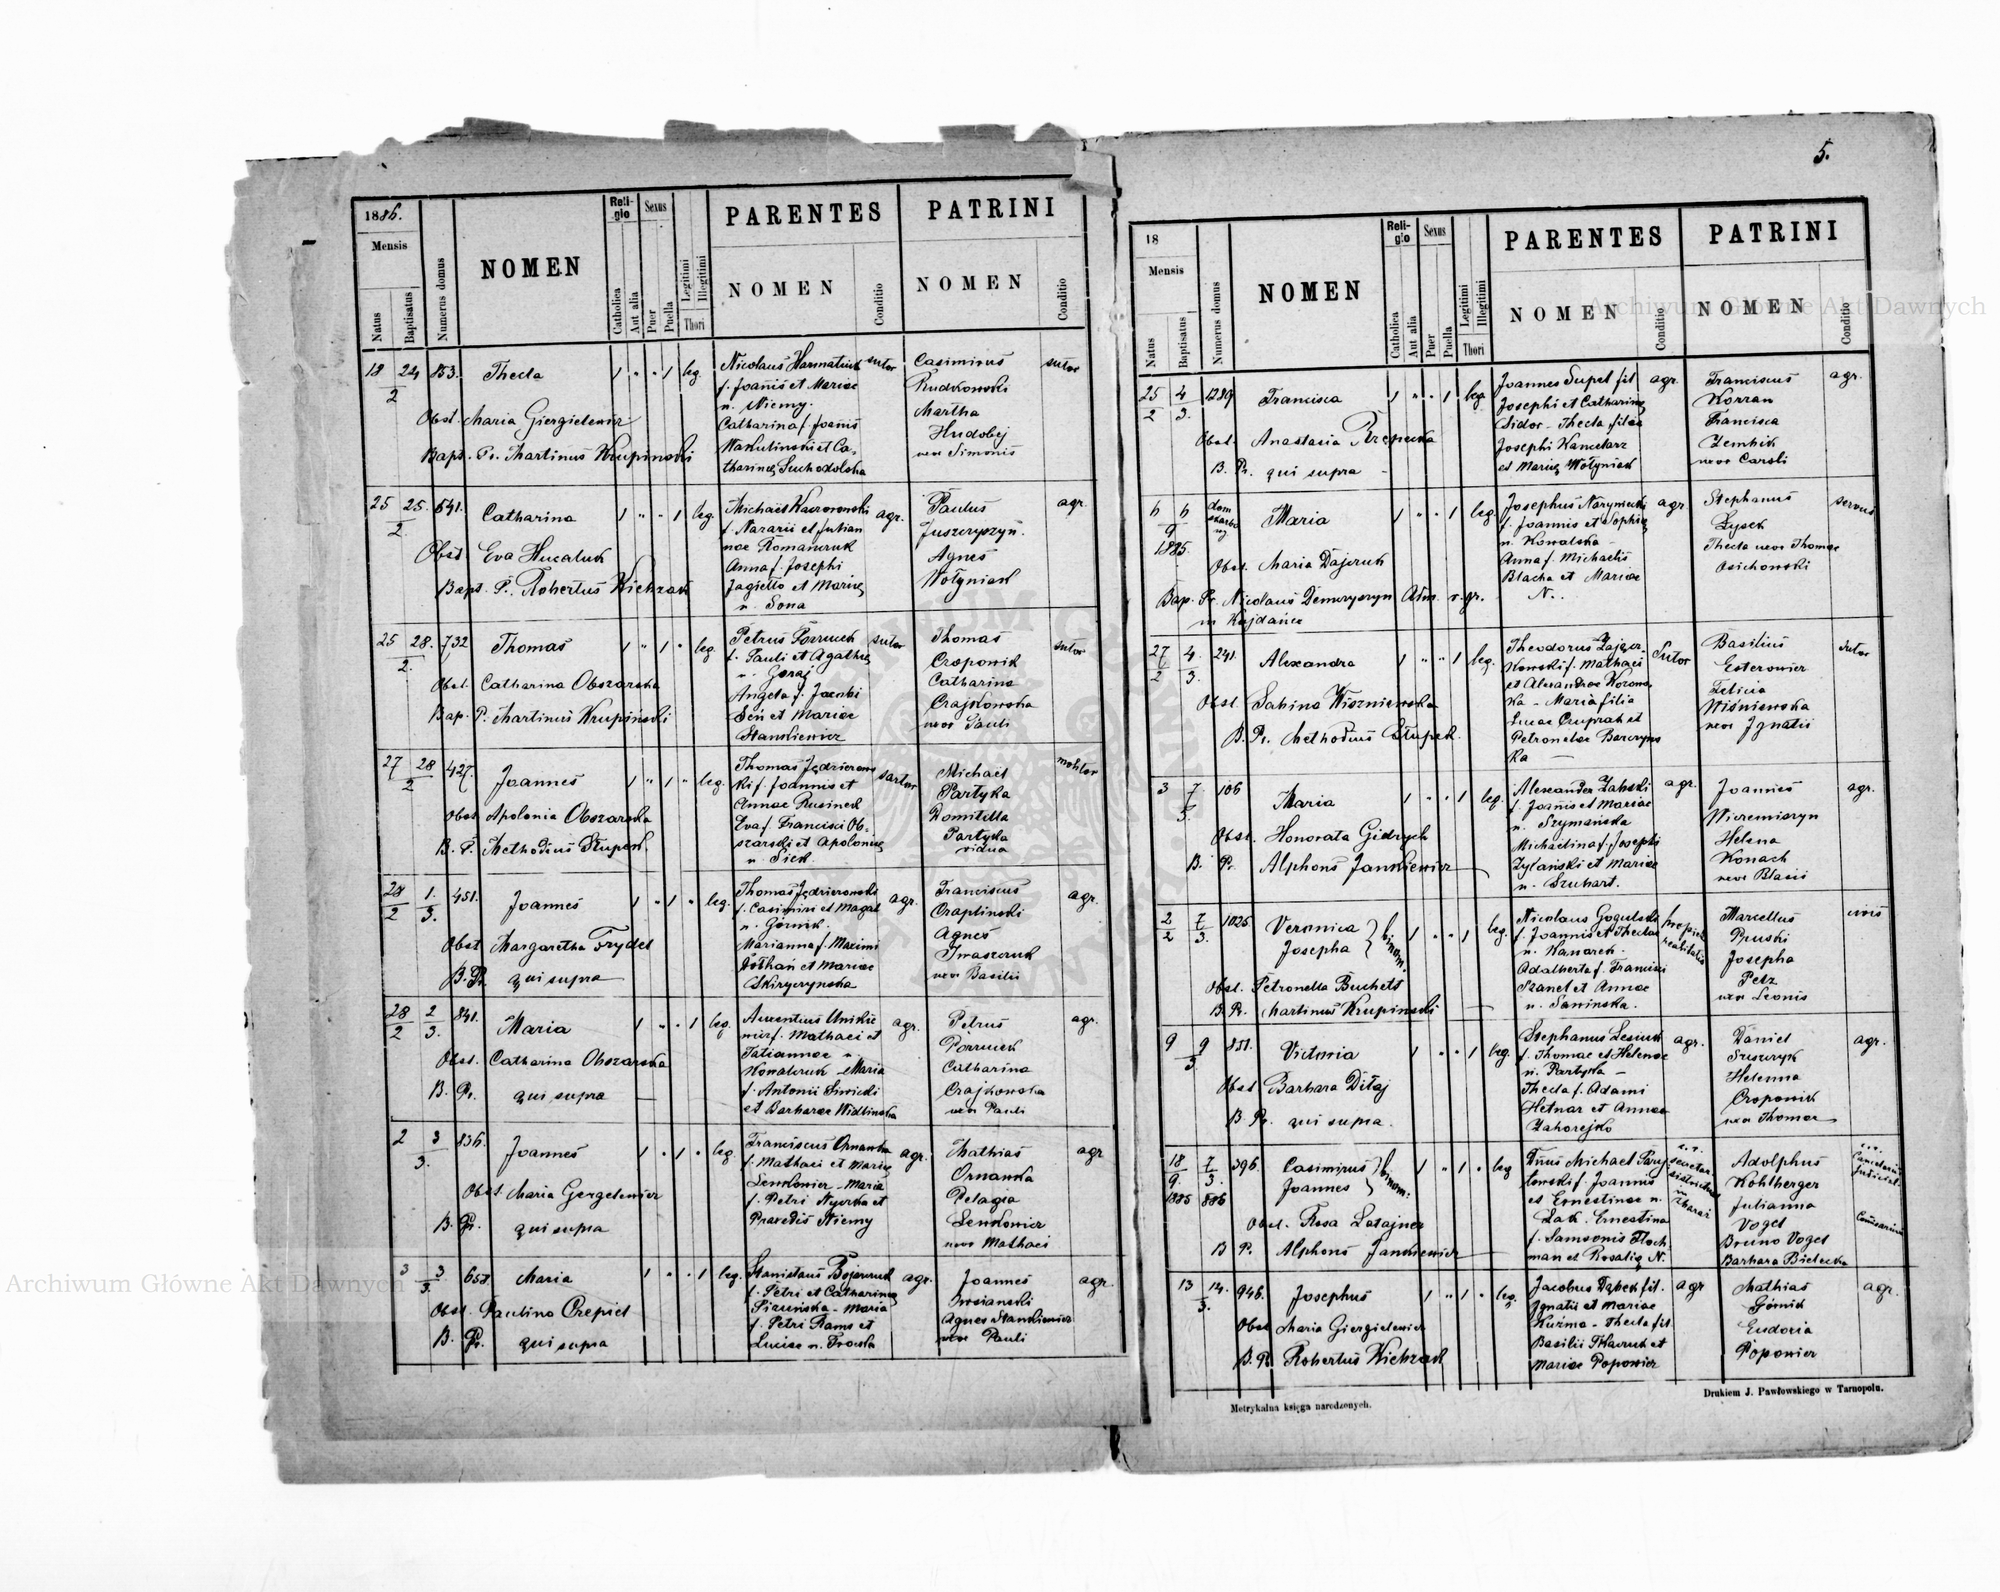 5.
1886.
Mensis
Natus
Baptisatus
Numerus domus
NOMEN
Religio
Catholica
Aut alia
Sexus
Puer
Puella
Legitimi
Illegitimi
Thori
PARENTES
NOMEN
Conditio
PATRINI
NOMEN
Conditio
18 24 853. Thecla 1 " " 1 leg.
2
Obst. Maria Giergielewicz
Bapt. Pr. Martinus Krupinski
Nicolaus Harmatiuk sutor
f. Joannis et Mariae
n. Niemy.
Catharina f. Joannis
et Ca-
tharinae Suchodolska
Casimirus sutor
Rudkowski
Martha
Hudobij
uxor Simonis
25 25. 641. Catharina 1 " " 1 leg.
2.
Obst Eva Hucaluk
Bapt. P. Robertus Wichrzak
Michael Kaczorowski agr.
f. Nazarii et Julian
nae Romanczuk
Anna f. Josephi
Jagiello et Mariae
n. Sona
Paulus agr.
Juszczyszyn.
Agnes
Wołyniak
25 28. 732 Thomas 1 " 1 " leg.
2.
Obst. Catharina Obszarska
Bap. P. Martinus Krupiński
Petrus Porruck sutor
f. Pauli et Agathae
n. Goraj
Angela f. Jacobi
Seń et Mariae
Stankiewicz
Thomas sutor
Czopowik
Catharina
Czajkowska
uxor Pauli
27 28 427. Joannes 1 " 1 " leg.
2
Obst Apolonia Obszarska
B. P. Methodius Słupek.
Thomas Jędrzejows sartor
ki f. Joannis et
Annae Rusinek
Eva f. Francisci Ob-
szarski et Apoloniae
n. Sick.
Michael molitor
Partyka
Domitilla
Partyka
vidua
28 1. 451. Joannes 1 " 1 " leg.
2 3.
Obst Margaretha Frydel
B. Pr. qui supra
Thomas Jędrzejowski agr.
f. Casimiri et Magal
n. Górnik.
Marianna f. Maximi
et Mariae
Skirzczynska
Franciscus agr.
Czaplinski
Agnes
Iwaszczuk
uxor Basilii
28 2 841. Maria 1 " " 1 leg.
2 3.
Obst. Catharina Obszarska
B. Pr. qui supra
Auxentius agr.
f. Mathaei et
Tatiannae n.
Kowalczuk - Maria
f. Antonii Siwicki
et Barbarae Widlinska
Petrus agr.
Porruck
Catharina
Czajkowska
uxor Pauli
2 3 836. Joannes 1 " 1 " leg.
3.
Obst. Maria Gergelewicz
B. Pr. qui supra
Franciscus Ornawka agr.
f. Mathaei et Mariae
Lenkowicz - Maria
f. Petri Nyorka et
Praxedis Niemy
Mathias agr
Ornawka
Pelagia
Lenkowicz
uxor Mathaei
3 3 658. Maria 1 " " 1 leg.
3.
Obst. Paulina Czepiel
B. Pr. qui supra
Stanislaus Bojarczuk agr.
f. Petri et Catharinae
Pizuńska - Maria
f. Petri Rams et
Luciae n. Trocka
Joannes agr.
Iwsianski
Agnes Stankiewicz
uxor Pauli
18
Mensis
Natus
Baptisatus
Numerus domus
NOMEN
Religio
Catholica
Aut alia
Sexus
Puer
Puella
Legitimi
Illegitimi
Thori
PARENTES
NOMEN
Conditio
PATRINI
NOMEN
Conditio
25 4 1289 Francisca 1 " " 1 leg.
2 3.
Obst. Anastasia Rzepecka
B. Pr. qui supra -
Joannes Supel fil agr.
Josephi et Catharinae
Sidor - Thecla filia
Josephi Kanclarz
et Mariae Wołyniak
Franciscus agr.
Korzan
Francisca
Zembik
uxor Caroli
6 6 dom Maria 1 " " 1 leg.
9 skarbo
1885 wy.
Obst. Maria Dajczuk
Bap. Pr. Nicolaus Demczyszyn Adm. r. gr.
in Kujdańce
Josephus Narymecki agr
f. Joannis et Sophiae
n. Kowalska -
Anna f. Michaelis
Blacha et Mariae
N..
Stephanus servus
Łysek
Thecla uxor Thomae
Osichowski
27 4 241. Alexandra 1 " " 1 leg.
2 3.
Obst. Sabina Wiszniewska
B. Pr. Methodius Słupek.
Theodorus Zając- sutor
kowski f. Mathaei
et Alexandrae Kozows
ka - Maria filia
Lucae Czuprak et
Petronelae Barczyns
ka -
Basilius sutor
Esterowicz
Felicia
Wiśniewska
uxor Ignatii
3 7 106 Maria 1 " " 1 leg.
3.
Obst. Honorata Gidrych
B. Pr. Alphons Jankiewicz
Alexander Zahski agr.
f. Joannis et Mariae
n. Szymańska
Michaelina f. Josephi
Zylański et Mariae
n. Szuhart.
Joannes agr.
Wieremiszyn
Helena
Konach
uxor Blasii
2 7 1025 Veronica } binom. 1 " " 1 leg.
2 3. Josepha
Obst. Petronella Buchelt
B. Pr. Martinus Krupinski
Nicolaus Gogulski
f. Joannis et Theclae
n. Kanarek.
Adalberta f. Francisci
Szanel et Annae
n. Saninska.
Marcellus civis
Pruski
Josepha
Petz
uxor Leonis
9 9 851. Victoria 1 " " 1 leg.
3
Obst Barbara Diłaj
B. Pr. qui supra.
Stephanus Lesiuk agr.
f. Thomae et Helenae
n. Partyka -
Thecla f. Adami
Hetnar et Annae
Zahorejko
Daniel agr.
Szuszczyk
Helenna
Czopowik
uxor Thomae
18 7 396. Casimirus } binom: 1 " 1 " leg
9. 3. Joannes
1885 886
Obst. Rosa Latajner
B Pr. Alphons Jankiewicz
Dnus Michael c.r.
f. Joannis
et Ernestinae n.
Lak. Ernestina
f. Samsonis Floch
man et Rosaliae N.
Adolphus c.r.
Kohlberger
Julianna
Vogel
Bruno Vogel
Barbara Bielecka
13 14. 946. Josephus 1 " 1 " leg.
3.
Obst Maria Giergielewicz
B. Pr Robertus Wichrzak
Jacobus Dąbek fil. agr
Ignatii et Mariae
Kuźma - Thecla fil
Basilii Tkaczuk et
Mariae Popowicz
Mathias agr.
Górnik
Eudoxia
Popowicz
Metrykalna księga narodzonych.
Drukiem J. Pawłowskiego w Tarnopolu.
Archiwum Główne Akt Dawnych
Archiwum Główne Akt Dawnych